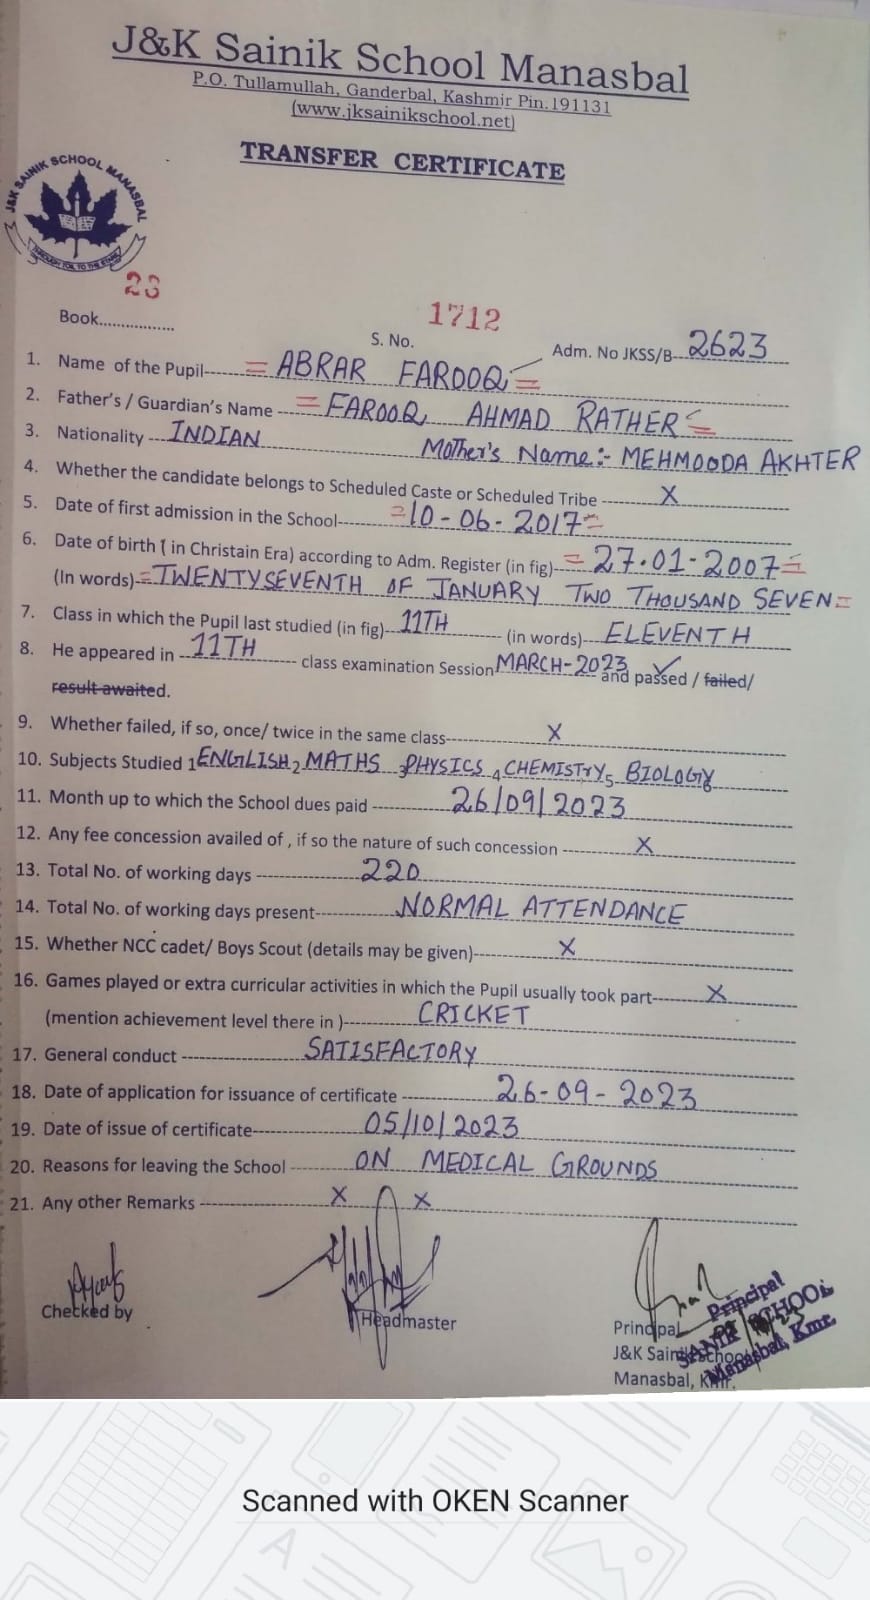 J&K Sainik School Manasbal
P.O. Tullamullah, Ganderbal, Kashmir Pin.191131
(www.jksainikschool.net)
TRANSFER CERTIFICATE
J&K SAINIK SCHOOL MANASBAL
THROUGH TOIL TO THE STARS
23
Book................
1712
S. No.
Adm. No JKSS/B--2623
1. Name of the Pupil------- = ABRAR FAROOQ =
2. Father's / Guardian's Name ---- = FAROOQ AHMAD RATHER =
3. Nationality ---INDIAN Mother's Name:- MEHMOODA AKHTER
4. Whether the candidate belongs to Scheduled Caste or Scheduled Tribe ---------- X
5. Date of first admission in the School--------- =10-06-2017=
6. Date of birth ( in Christain Era) according to Adm. Register (in fig)-- = 27.01-2007=
(In words)-=TWENTYSEVENTH OF JANUARY TWO THOUSAND SEVEN=
7. Class in which the Pupil last studied (in fig)---11TH------- (in words)---ELEVENTH
8. He appeared in ---11TH------- class examination Session MARCH-2023 and passed ✓ / failed/
result awaited.
9. Whether failed, if so, once/ twice in the same class------------------- X
10. Subjects Studied 1ENGLISH 2 MATHS 3PHYSICS 4 CHEMISTrY 5 BIOLOGY
11. Month up to which the School dues paid -------------- 26/09/2023
12. Any fee concession availed of , if so the nature of such concession -------------- X
13. Total No. of working days ------------------- 220
14. Total No. of working days present--------------NORMAL ATTENDANCE
15. Whether NCC cadet/ Boys Scout (details may be given)--------------- X
16. Games played or extra curricular activities in which the Pupil usually took part--------- X
(mention achievement level there in )------------- CRICKET
17. General conduct --------------------- SATISFACTORY
18. Date of application for issuance of certificate ---------------- 26-09-2023
19. Date of issue of certificate------------------- 05/10/2023
20. Reasons for leaving the School ---------- ON MEDICAL GROUNDS
21. Any other Remarks -------------------- X X
Checked by
Headmaster
Principal
J&K Sainik School
Manasbal, Kmr.
Principal
SANIK SCHOOL
Manasbal, Kmr.
Scanned with OKEN Scanner